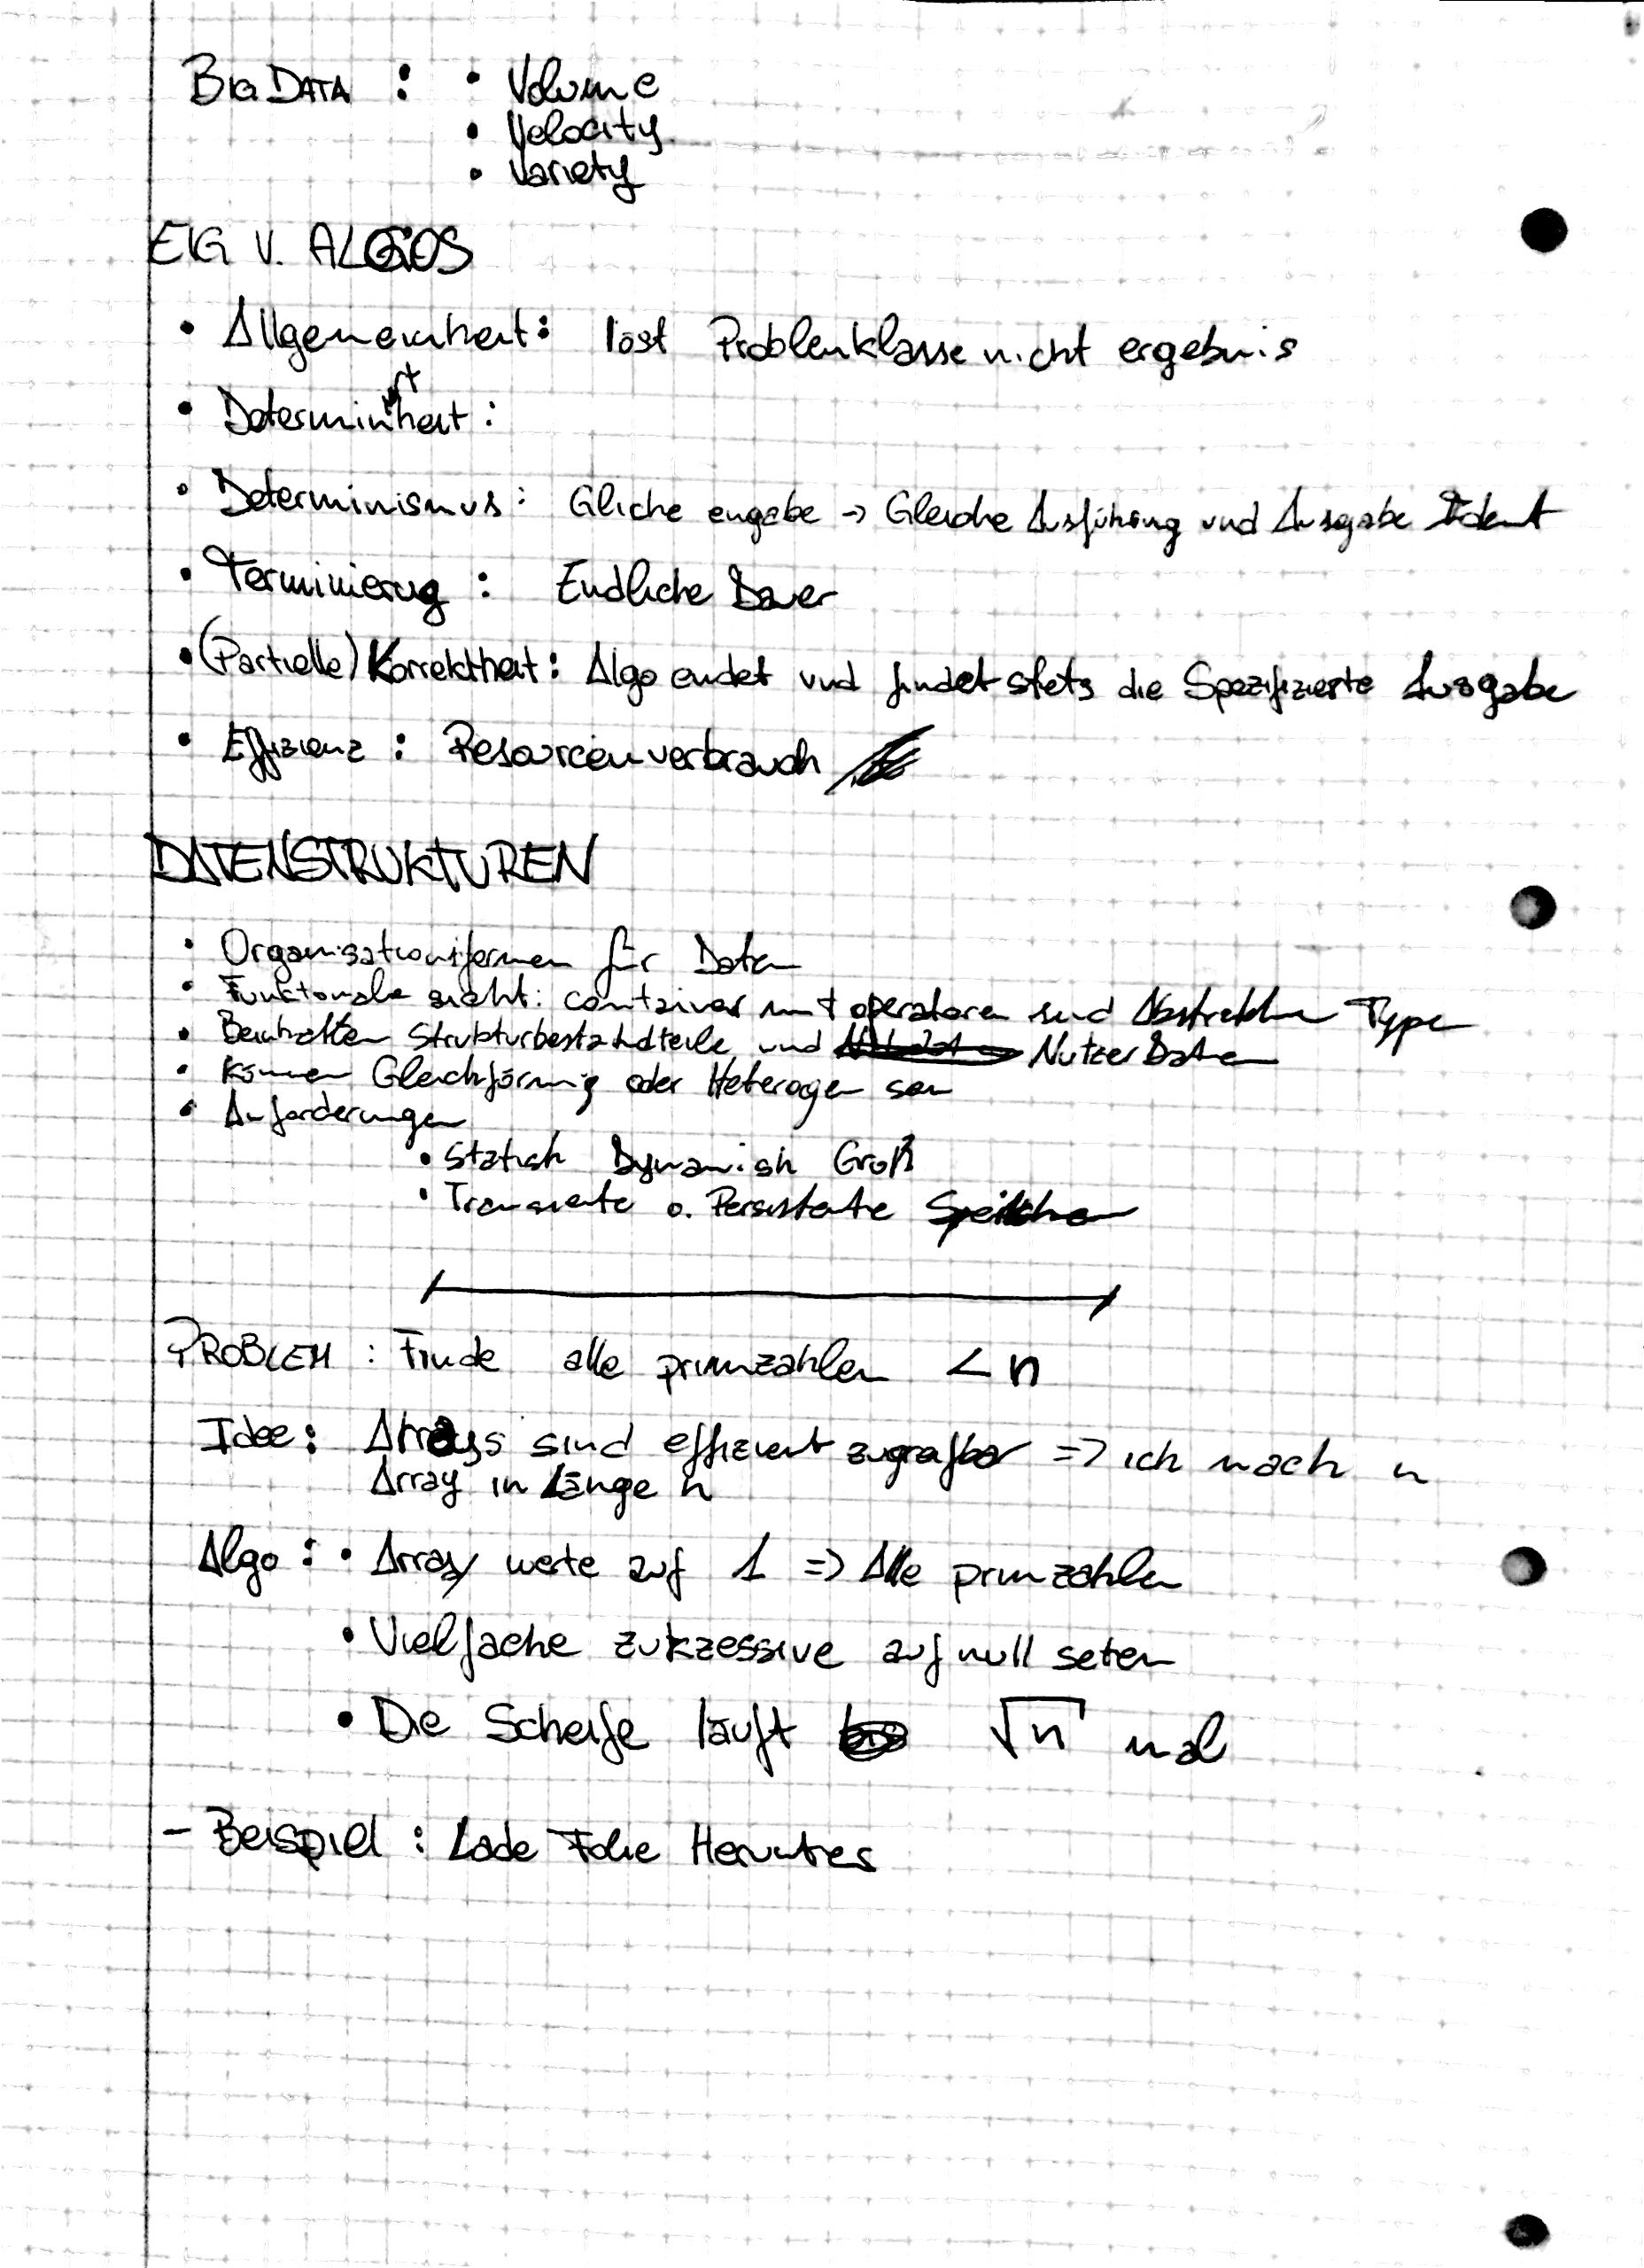 BIG DATA : • Volume
• Velocity
• Variety
EIG V. ALGOS
• Allgemeinheit: löst Problemklasse nicht ergebnis
• Determiniertheit:
• Determinismus: Gliche eingabe → Gleiche Ausführung und Ausgabe Ident
• Terminierug : Endliche Dauer
• (Partielle) Korrektheit: Algo endet und findet stets die Spezifizierte Ausgabe
• Effizienz : Resourcenverbrauch
DATENSTRUKTUREN
• Organisationsformen für Daten
• Funktionale sicht: container mit operatoren sind Abstrakten Type
• Beinhalten Strukturbestandteile und Nutzer Daten
• Können Gleichförmig oder Heterogen sein
• Anforderungen
• Statish Dynamish Groß
• Transiente o. Persistente Speicher
PROBLEM : Finde alle primzahlen < n
Idee: Arrays sind effizient zugreifbar => ich mach n
Array in Länge n
Algo : • Array werte auf 1 => Alle primzahlen
• Vielfache zukzessive auf null seten
• Die Scheife läuft √n mal
- Beispiel : Lade Folie Herunter